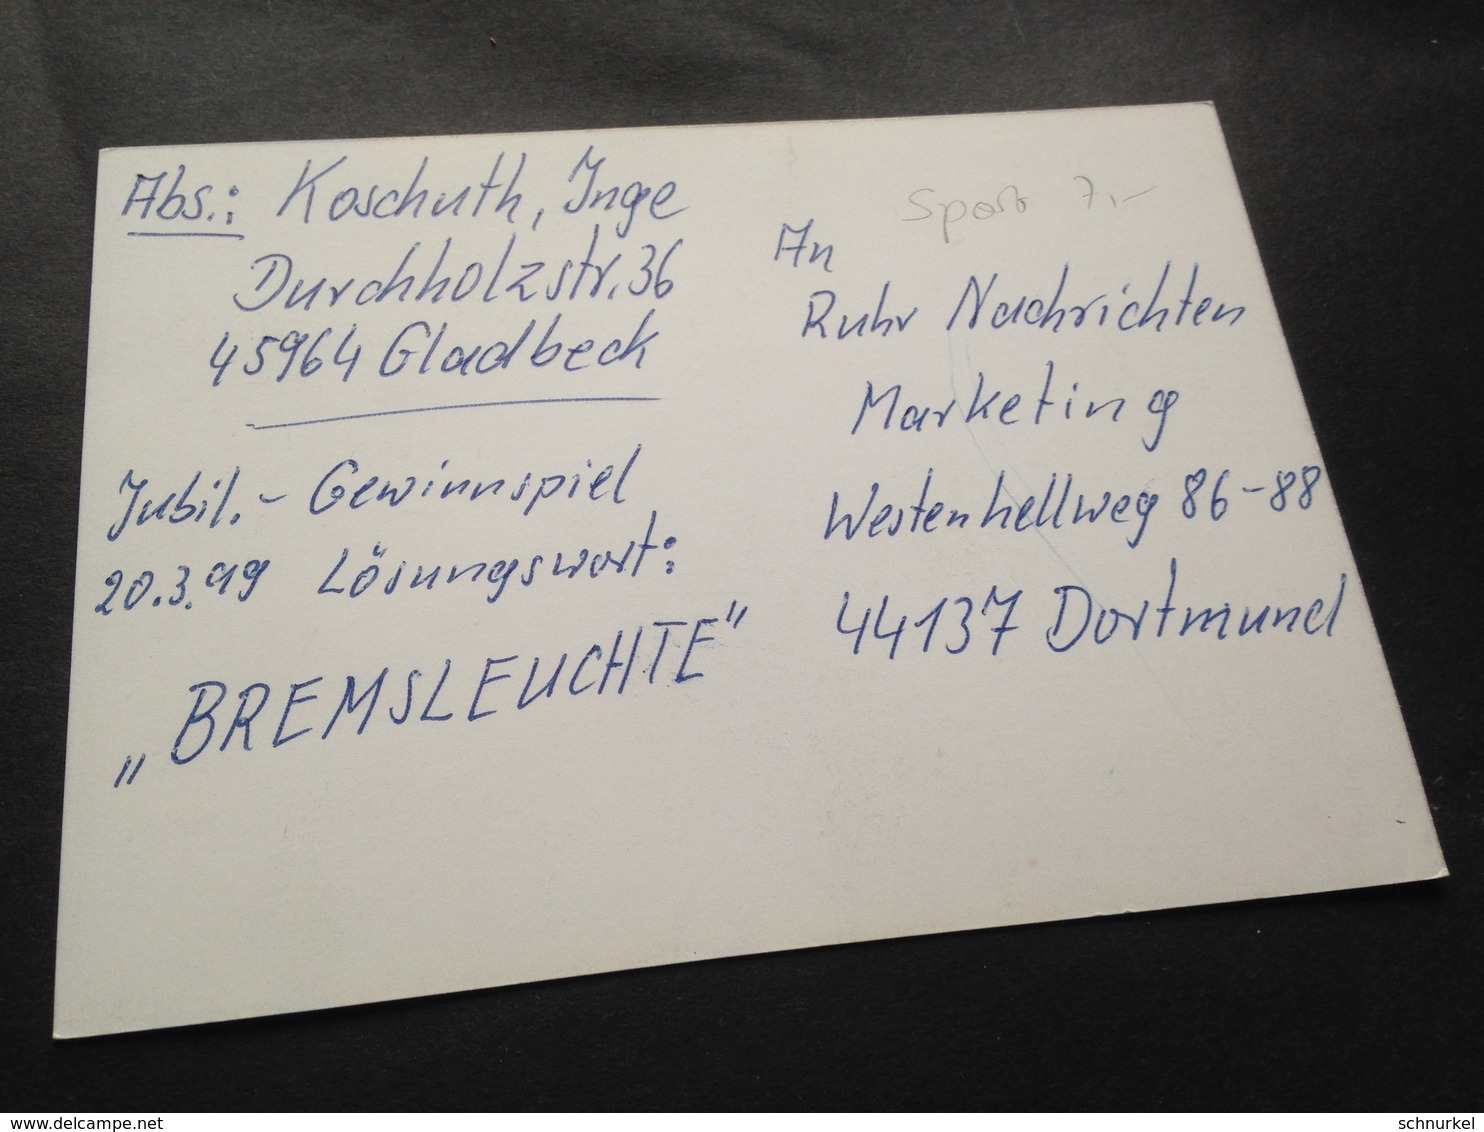 Abs.: Koschuth, Inge
Durchholzstr. 36
45964 Gladbeck
Jubil.- Gewinnspiel
20.3.99 Lösungswort:
„BREMSLEUCHTE"
Sport 7,-
An
Ruhr Nachrichten
Marketing
Westenhellweg 86-88
44137 Dortmund
delcampe.net
schnurkel